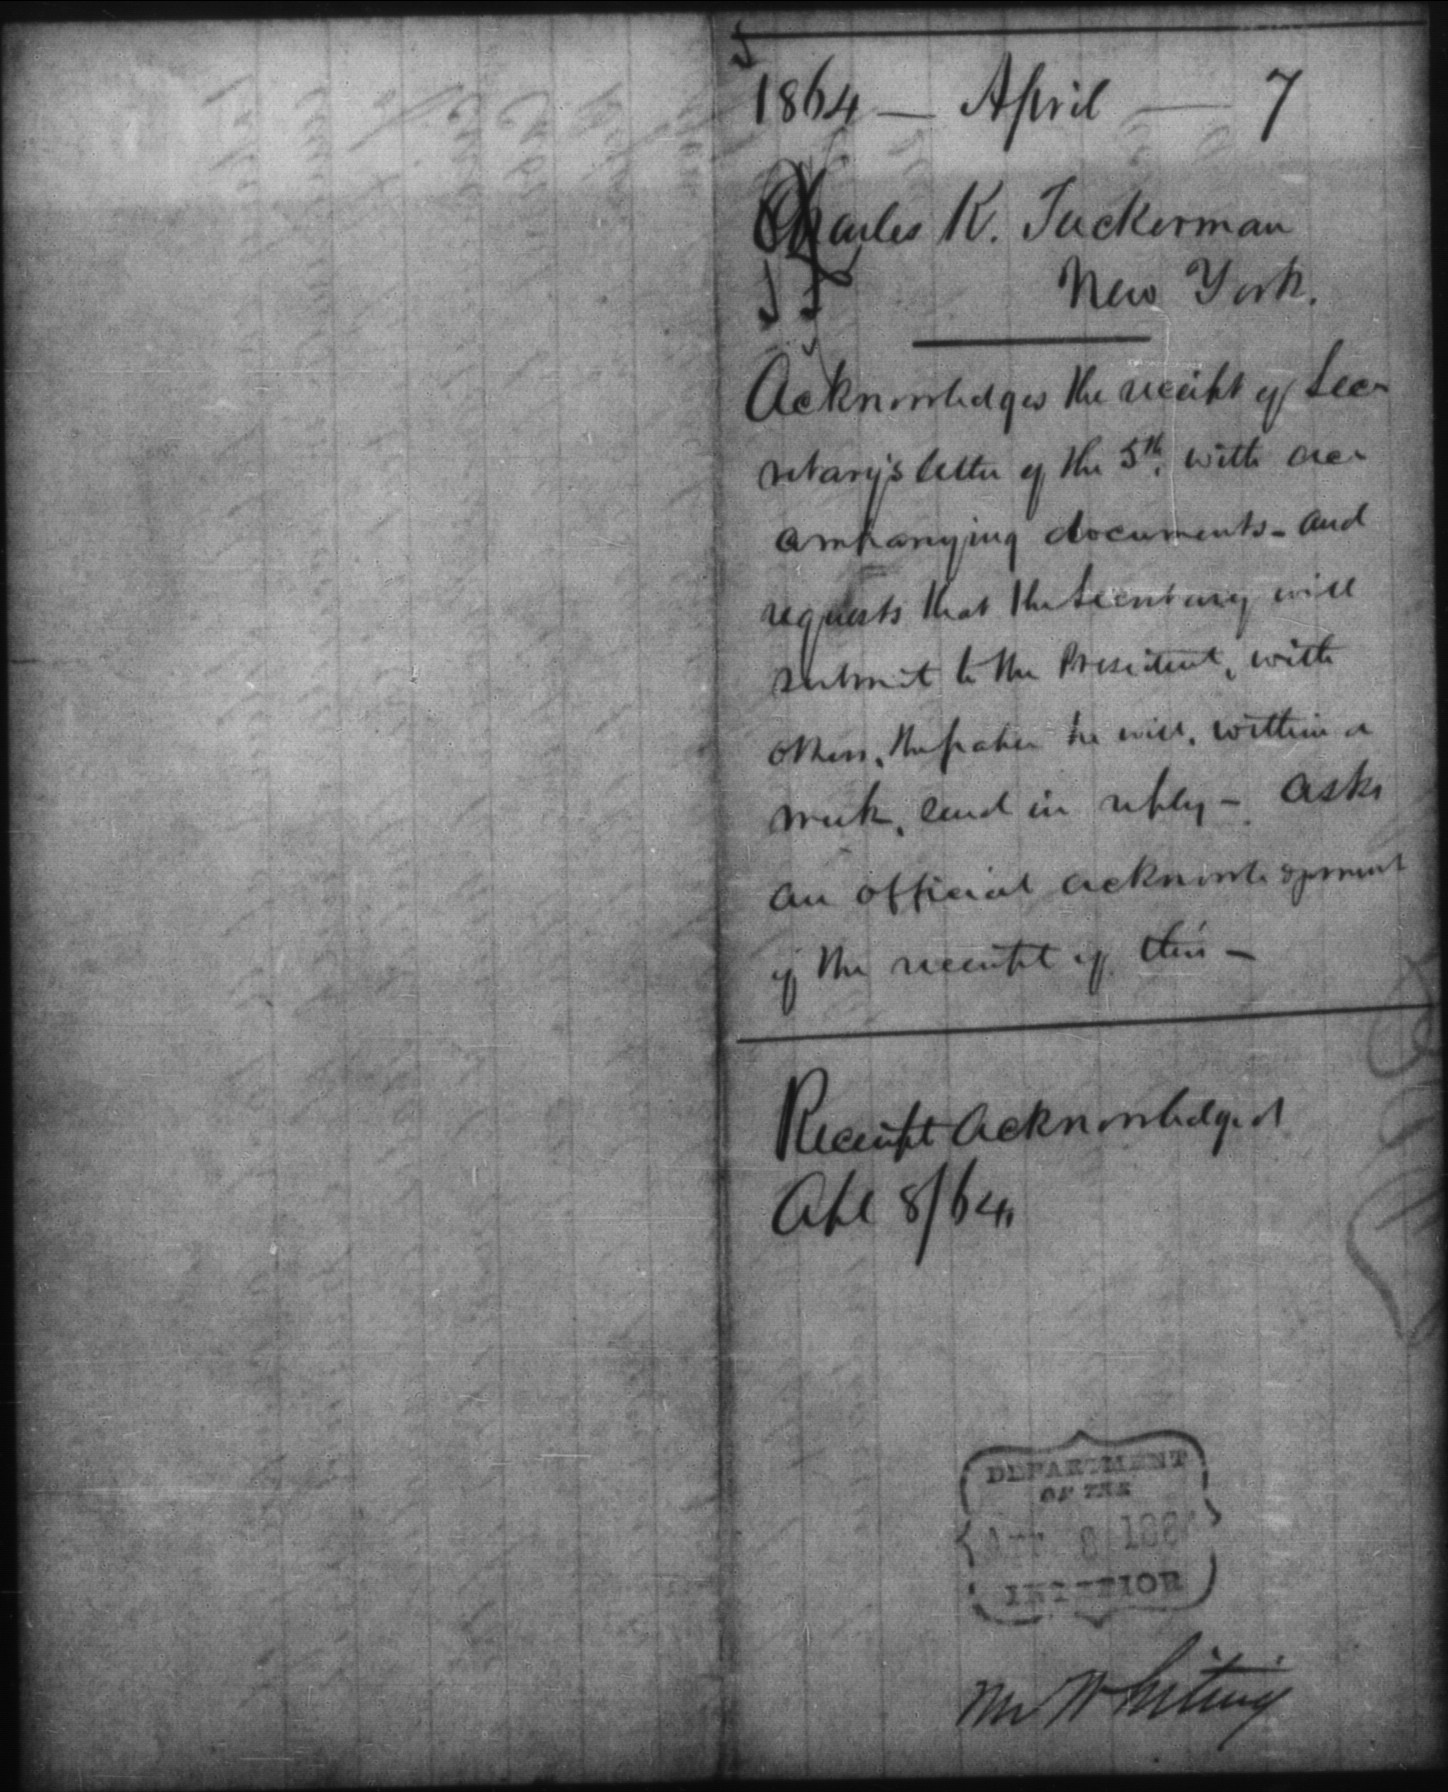 1864 — April — 7
Charles K. Tuckerman
New York.
Acknowledges the receipt of Sec-
retary's letter of the 5th, with acc-
ompanying documents - and
requests that the Secretary will
submit to the President, with
others, the paper he will, within a
week, send in reply - Asks
an official acknowledgement
of the receipt of this -
Receipt Acknowledged
Apl 8/64.
DEPARTMENT
OF THE
Apr 8 1864
INTERIOR
Mr Whiting